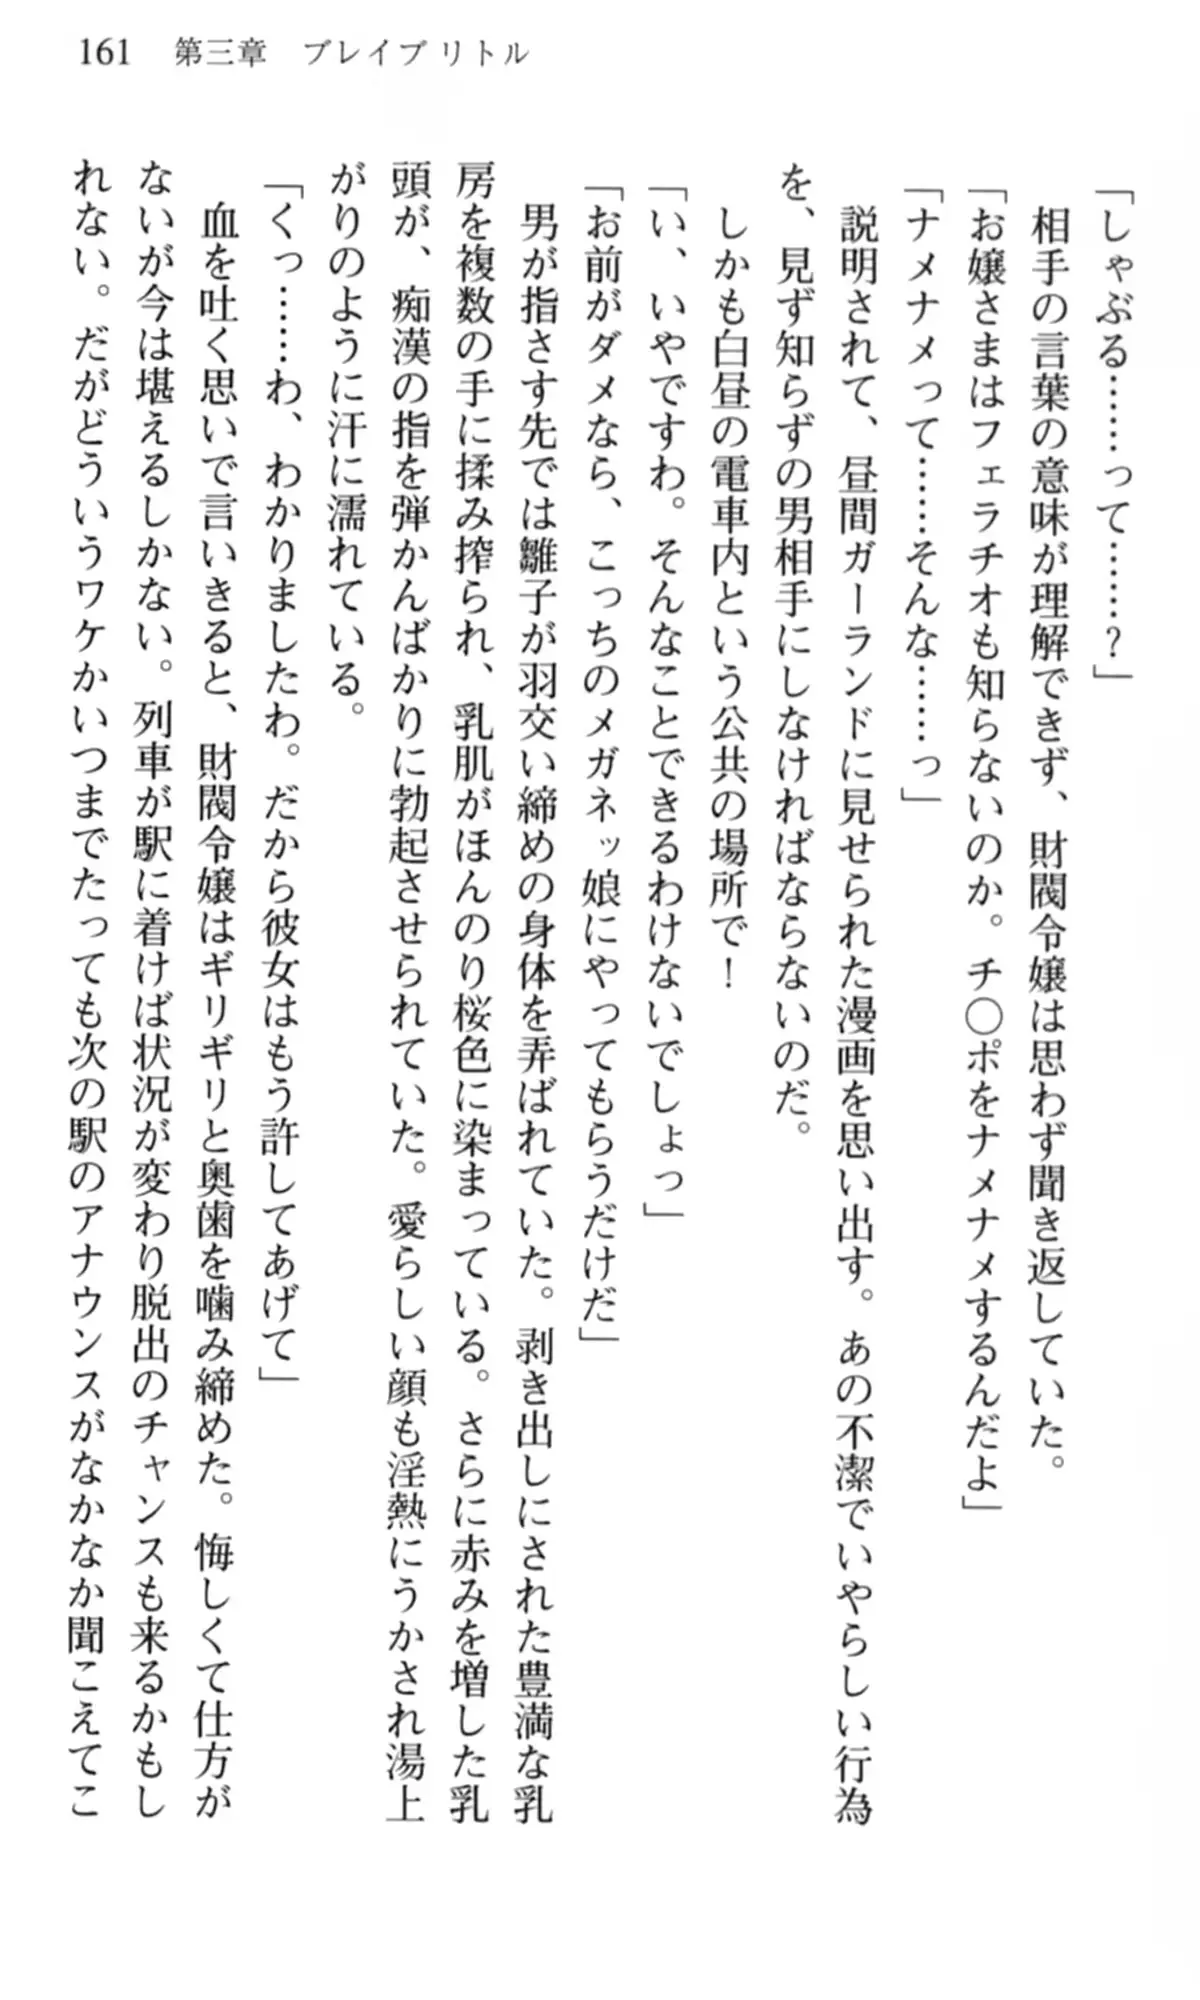 161　第三章　ブレイブリトル
「しゃぶる……って……？」
　相手の言葉の意味が理解できず、財閥令嬢は思わず聞き返していた。
「お嬢さまはフェラチオも知らないのか。チ〇ポをナメナメするんだよ」
「ナメナメって……そんな……っ」
　説明されて、昼間ガーランドに見せられた漫画を思い出す。あの不潔でいやらしい行為
を、見ず知らずの男相手にしなければならないのだ。
　しかも白昼の電車内という公共の場所で！
「い、いやですわ。そんなことできるわけないでしょっ」
「お前がダメなら、こっちのメガネッ娘にやってもらうだけだ」
　男が指さす先では雛子が羽交い締めの身体を弄ばれていた。剥き出しにされた豊満な乳
房を複数の手に揉み搾られ、乳肌がほんのり桜色に染まっている。さらに赤みを増した乳
頭が、痴漢の指を弾かんばかりに勃起させられていた。愛らしい顔も淫熱にうかされ湯上
がりのように汗に濡れている。
「くっ……わ、わかりましたわ。だから彼女はもう許してあげて」
　血を吐く思いで言いきると、財閥令嬢はギリギリと奥歯を噛み締めた。悔しくて仕方が
ないが今は堪えるしかない。列車が駅に着けば状況が変わり脱出のチャンスも来るかもし
れない。だがどういうワケかいつまでたっても次の駅のアナウンスがなかなか聞こえてこ